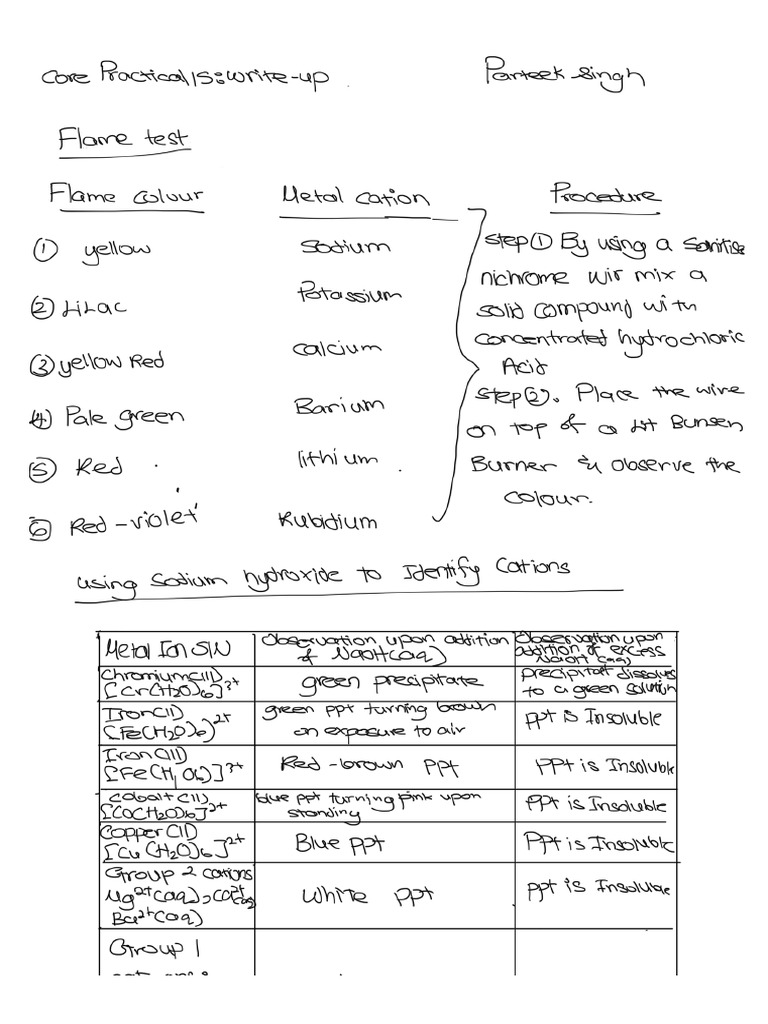 Core Practical 15: Write-up
Parteek Singh
Flame test
Flame colour Metal cation Procedure
① yellow Sodium
② Lilac Potassium
③ yellow Red Calcium
④ Pale green Barium
⑤ Red lithium
⑥ Red-violet Rubidium
Step ① By using a sanitise
nichrome wir mix a
solid compound with
concentrated hydrochloric
Acid
Step ②. Place the wire
on top of a lit Bunsen
Burner & observe the
colour.
using Sodium hydroxide to Identify Cations
Metal Ion S/N Observation upon addition of NaOH(aq) Observation upon addition of excess NaOH (aq)
Chromium(III) [Cr(H2O)6]3+ green precipitate precipitate dissolves to a green solution
Iron(II) [Fe(H2O)6)2+ green ppt turning brown on exposure to air ppt is Insoluble
Iron(III) Red-brown ppt PPt is Insoluble
Cobalt(II) [Co(H2O)6]2+ blue ppt turning pink upon standing PPt is Insoluble
Copper(II) [Cu(H2O)6]2+ Blue ppt PPt is Insoluble
Group 2 cations Mg2+(aq), Ca2+(aq) Ba2+(aq) White ppt ppt is Insoluble
Group 1